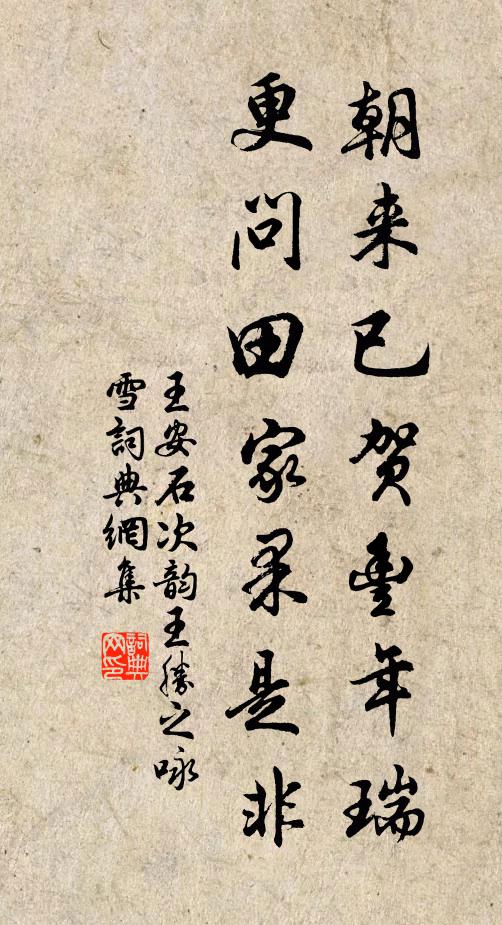 朝来已贺豐年瑞
更問田家果是非
王安石次韵王勝之咏
雪詞典網集
詞典网印